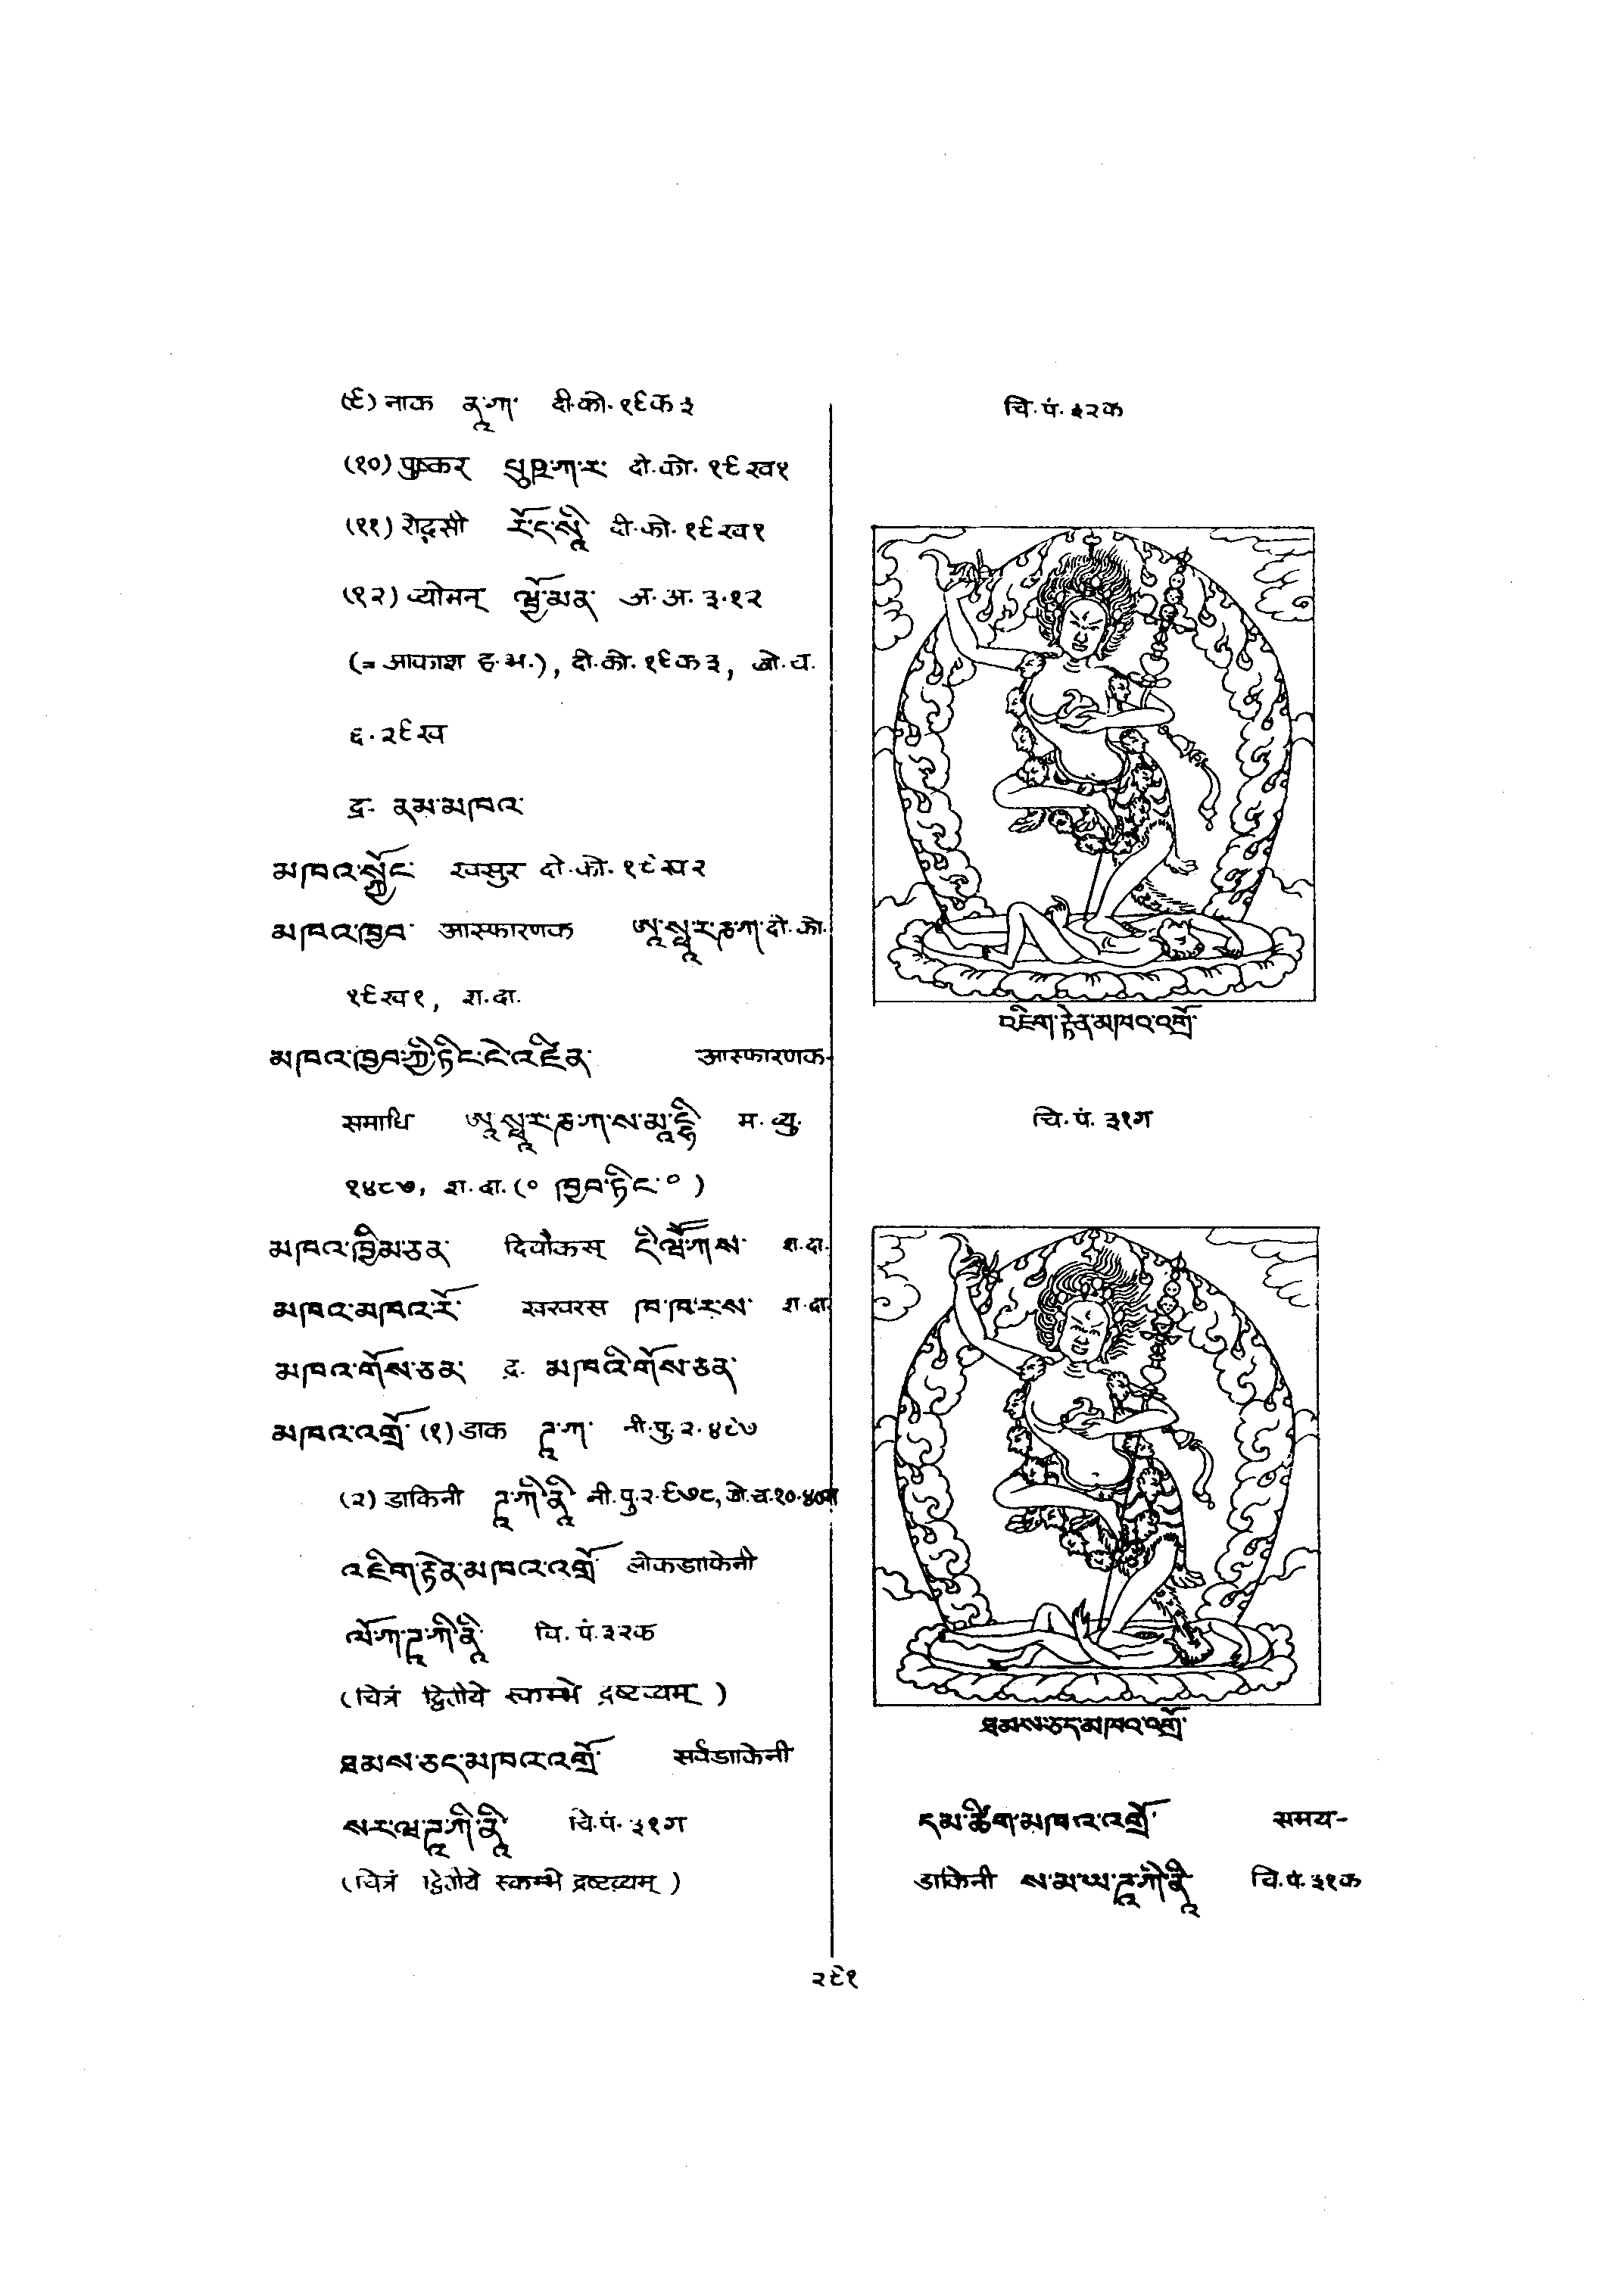 (९) नाक ནཱ་ཀ་ दी.को. १९क३
(१०) पुष्कर པུཥྐ་ར་ दी.को. १९ख१
(११) रोदसी རོ་ད་སཱི दी.को. १९ख१
(१२) व्योमन् ཝྱོ་མན་ अ.अ. ३.१२
(= आकाश ह.भ.), दी.को. १९क३, बो.च.
६.२९ख
द्र. ནམ་མཁའ་
མཁའ་སྐྱོང་ खसुर दी.को. १९ख२
མཁའ་ཁྱབ་ आस्फारणक ཨཱ་སྥཱ་ར་ཎ་ཀ་ दी.को.
१९ख१, श.दा.
མཁའ་ཁྱབ་ཀྱི་ཏིང་ངེ་འཛིན་ आस्फारणक-
समाधि ཨཱ་སྥཱ་ར་ཎ་ཀ་ས་མཱ་དྷི म.व्यु.
१४८७, श.दा. (० ཁྱབ་ཏིང་ ०)
མཁའ་ཁྱིམ་ཅན་ दिवौकस् དི་ཝཽ་ཀས་ श.दा.
མཁའ་མཁའ་རོ་ खखरस ཁ་ཁ་ར་ས་ श.दा.
མཁའ་གོས་ཅན་ द्र. མཁའི་གོས་ཅན་
མཁའ་འགྲོ་ (१) डाक ཌཱ་ཀ་ नी.पु. २.४८७
(२) डाकिनी ཌཱ་ཀི་ནཱི नी.पु. २.९७८, बो.च. १०.४०
འཇིག་རྟེན་མཁའ་འགྲོ་ लोकडाकिनी
ལོ་ཀ་ཌཱ་ཀི་ནཱི चि.पं. ३२क
(चित्रं द्वितीये स्कम्भे द्रष्टव्यम्)
ཐམས་ཅད་མཁའ་འགྲོ་ सर्वडाकिनी
སར་ཝ་ཌཱ་ཀི་ནཱི चि.पं. ३१ग
(चित्रं द्वितीये स्कम्भे द्रष्टव्यम्)
चि.पं. ३२क
འཇིག་རྟེན་མཁའ་འགྲོ་
चि.पं. ३१ग
ཐམས་ཅད་མཁའ་འགྲོ་
དམ་ཚིག་མཁའ་འགྲོ་ समय-
डाकिनी ས་མ་ཡ་ཌཱ་ཀི་ནཱི चि.पं. ३१क
२९१